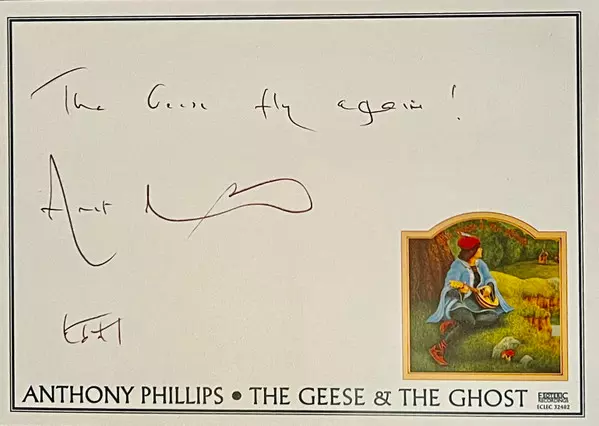 The Geese fly again!
Ant
ANTHONY PHILLIPS • THE GEESE & THE GHOST
ESOTERIC
RECORDINGS
ECLEC 32402